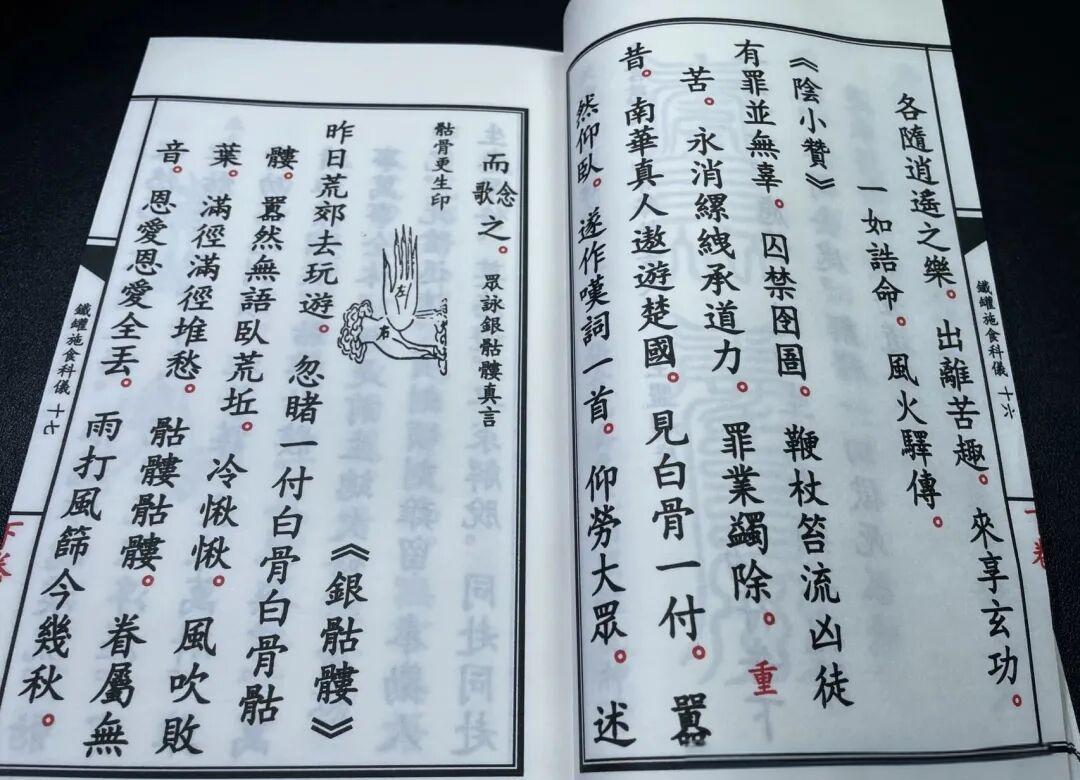 各隨逍遙之樂。出離苦趣。來享玄功。
一如誥命。風火驛傳。
《陰小贊》
有罪並無辜。囚禁囹圖。鞭杖笞流凶徒
苦。永消縲絏承道力。罪業蠲除。重
昔。南華真人遨遊楚國。見白骨一付。囂
然仰臥。遂作嘆詞一首。仰勞大眾。述
鐵罐施食科儀 十六
而念歌之。眾詠銀骷髏真言
骷骨更生印
左
右
《銀骷髏》
昨日荒郊去玩遊。忽睹一付白骨白骨骷
髏。囂然無語臥荒坵。冷愀愀。風吹敗
葉。滿徑滿徑堆愁。骷髏骷髏。眷屬無
音。恩愛恩愛全丟。雨打風篩今幾秋。
鐵罐施食科儀 十七
下卷